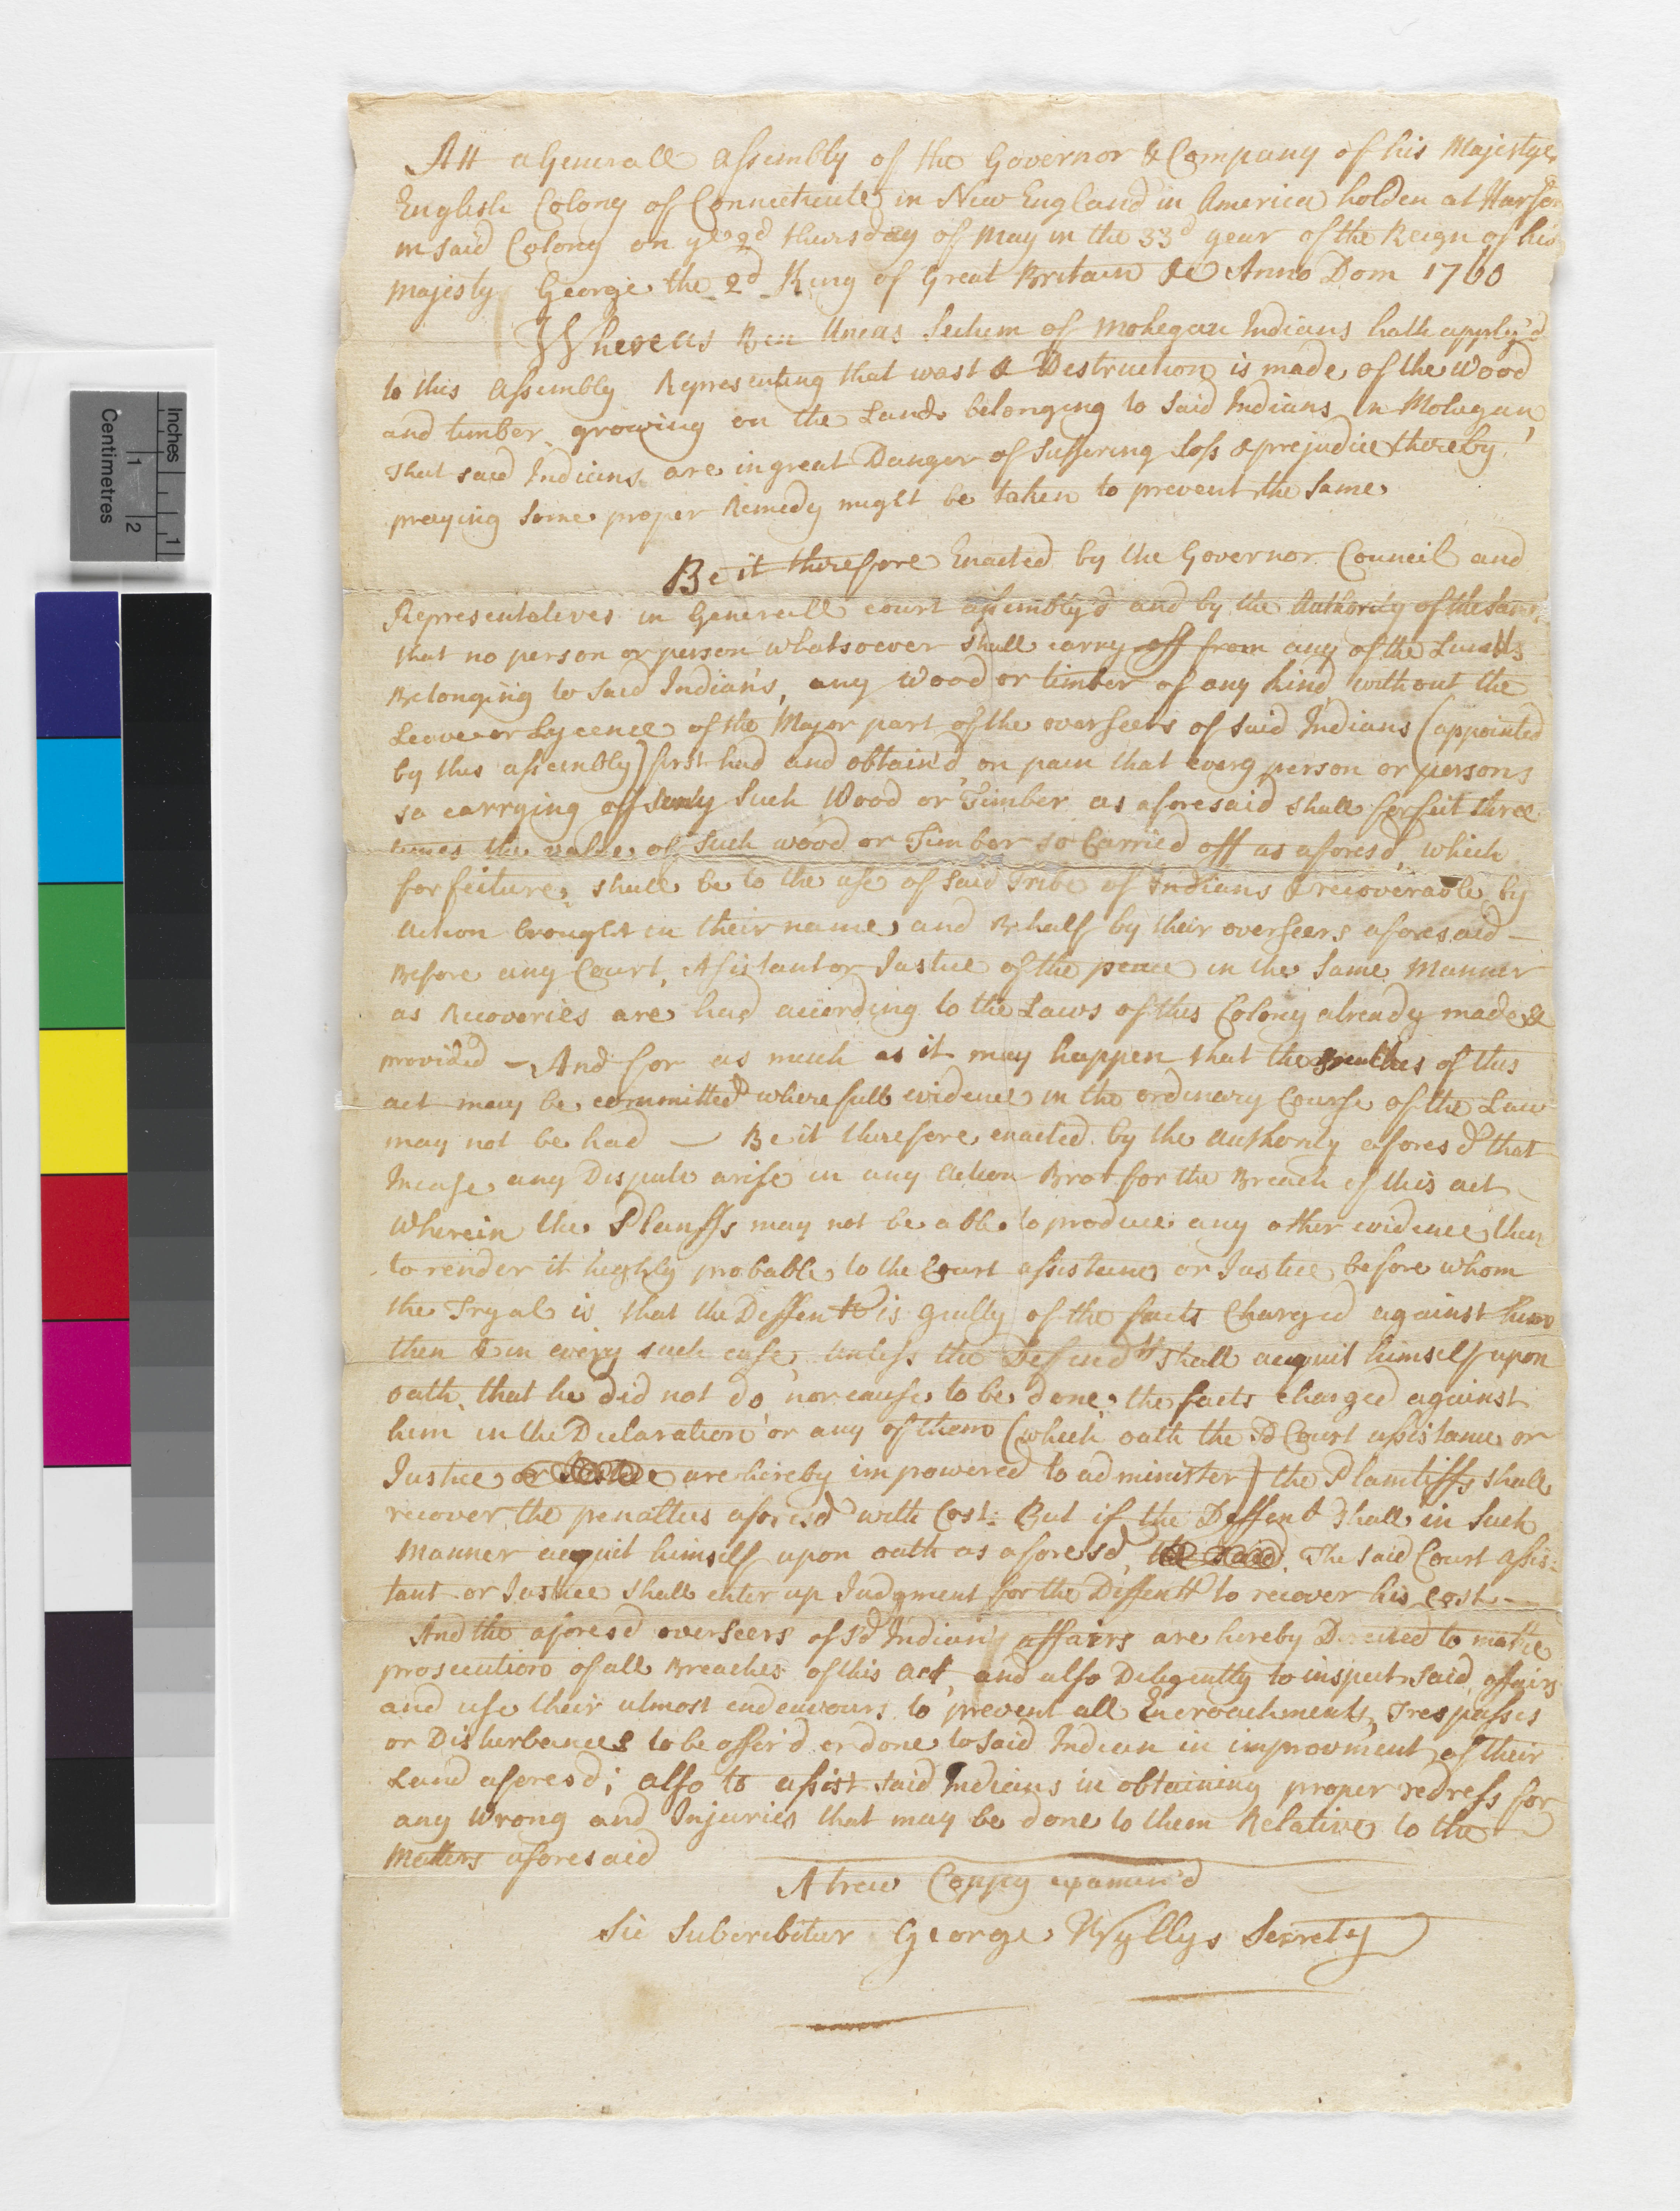 Att a Generall Assembly of the Governor & Company of his Majestys
English Colony of Connecticute in New England in America holden at Harfor
in said Colony on ye 2d thursday of May in the 33d year of the Reign of his
Majesty George the 2d King of Great Britain &c Anno Dom 1760
Whereas Ben Uncas Sechem of Mohegan Indians hath apply'd
to this Assembly Representing that wast & Destruction is made of the Wood
and timber growing on the Lands belonging to said Indians in Mohegan,
That said Indians are in great Danger of suffering loss & prejudice thereby
praying some proper Remedy might be taken to prevent the same
Be it therefore Enacted by the Governor Council and
Representatives in Generall court assembly'd and by the Authority of the same
that no person or person whatsoever shall carry off from any of the Lands
Belonging to said Indians, any Wood or timber of any kind without the
Leave or Lycence of the Major part of the overseers of said Indians (appointed
by this assembly) first had and obtain'd on pain that every person or persons
so carrying off any such Wood or Timber as aforesaid shall forfeit three
times the value of such wood or Timber so Carried off as aforesd, which
forfeiture shall be to the use of said Tribe of Indians & recoverable by
Action brought in their name and Behalf by their overseers aforesaid —
Before any Court, Asistant or Justice of the peace in the same Manner
as Recoveries are had according to the Laws of this Colony already made &
provided — And for as much as it may happen that the Breaches of this
act may be committed where full evidence in the ordinary Course of the Law
may not be had — Be it therefore enacted by the Authority aforesd that
Incase any Dispute arise in any Action Brot for the Breach of this act
Wherein the Planffs may not be able to produce any other evidence then
to render it highly probable to the Court assistance or Justice before whom
the Tryal is that the Deffentt is guilty of the facts Charged against him
then & in every such case unless the Defendtt shall acquit himself upon
oath that he did not do nor cause to be done the facts charged against
him in the Declaration or any of them (which oath the sd Court assistance or
Justice are hereby impowered to administer) the Plaintiffs shall
recover the penalties aforesd with Cost: But if the Deffent shall in such
Manner acquit himself upon oath as aforesd, The said Court Assis=
tant or Justice shall enter up Judgment for the Diffentt to recover his cost —
And the aforesd overseers of sd Indian's affairs are hereby Directed to make
prosecution of all Breaches of this act, and also Deligently to inspect said affairs
and use their utmost endeavours to prevent all Encroachments, Trespasses
or Disturbances to be offer'd or done to said Indian in improvment of their
Land aforesd; also to assist said Indians in obtaining proper redress for
any Wrong and Injuries that may be done to them Relative to the
Matters aforesaid
A trew Coppy examin'd
Sic Subscribitur George Wyllys Secrety
Inches
1
Centimetres
1
2